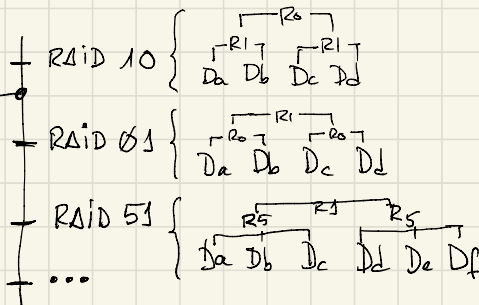 R0
RAID 10 { R1 R1
Da Db Dc Dd
R1
RAID 01 { R0 R0
Da Db Dc Dd
R1
RAID 51 { R5 R5
Da Db Dc Dd De Df
...